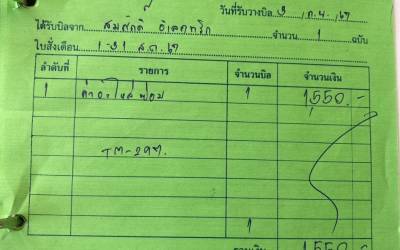 วันที่รับวางบิล 3 / ก.ย. / 67
ได้รับบิลจาก สมศักดิ์ อิเลคทริก จำนวน 1 ฉบับ
ใบสั่งเดือน 1-31 ส.ค. 67
ลำดับที่ รายการ จำนวนบิล จำนวนเงิน
1 ค่าอะไหล่ 1 1,550.-
1
รวมเงิน 1,550.-